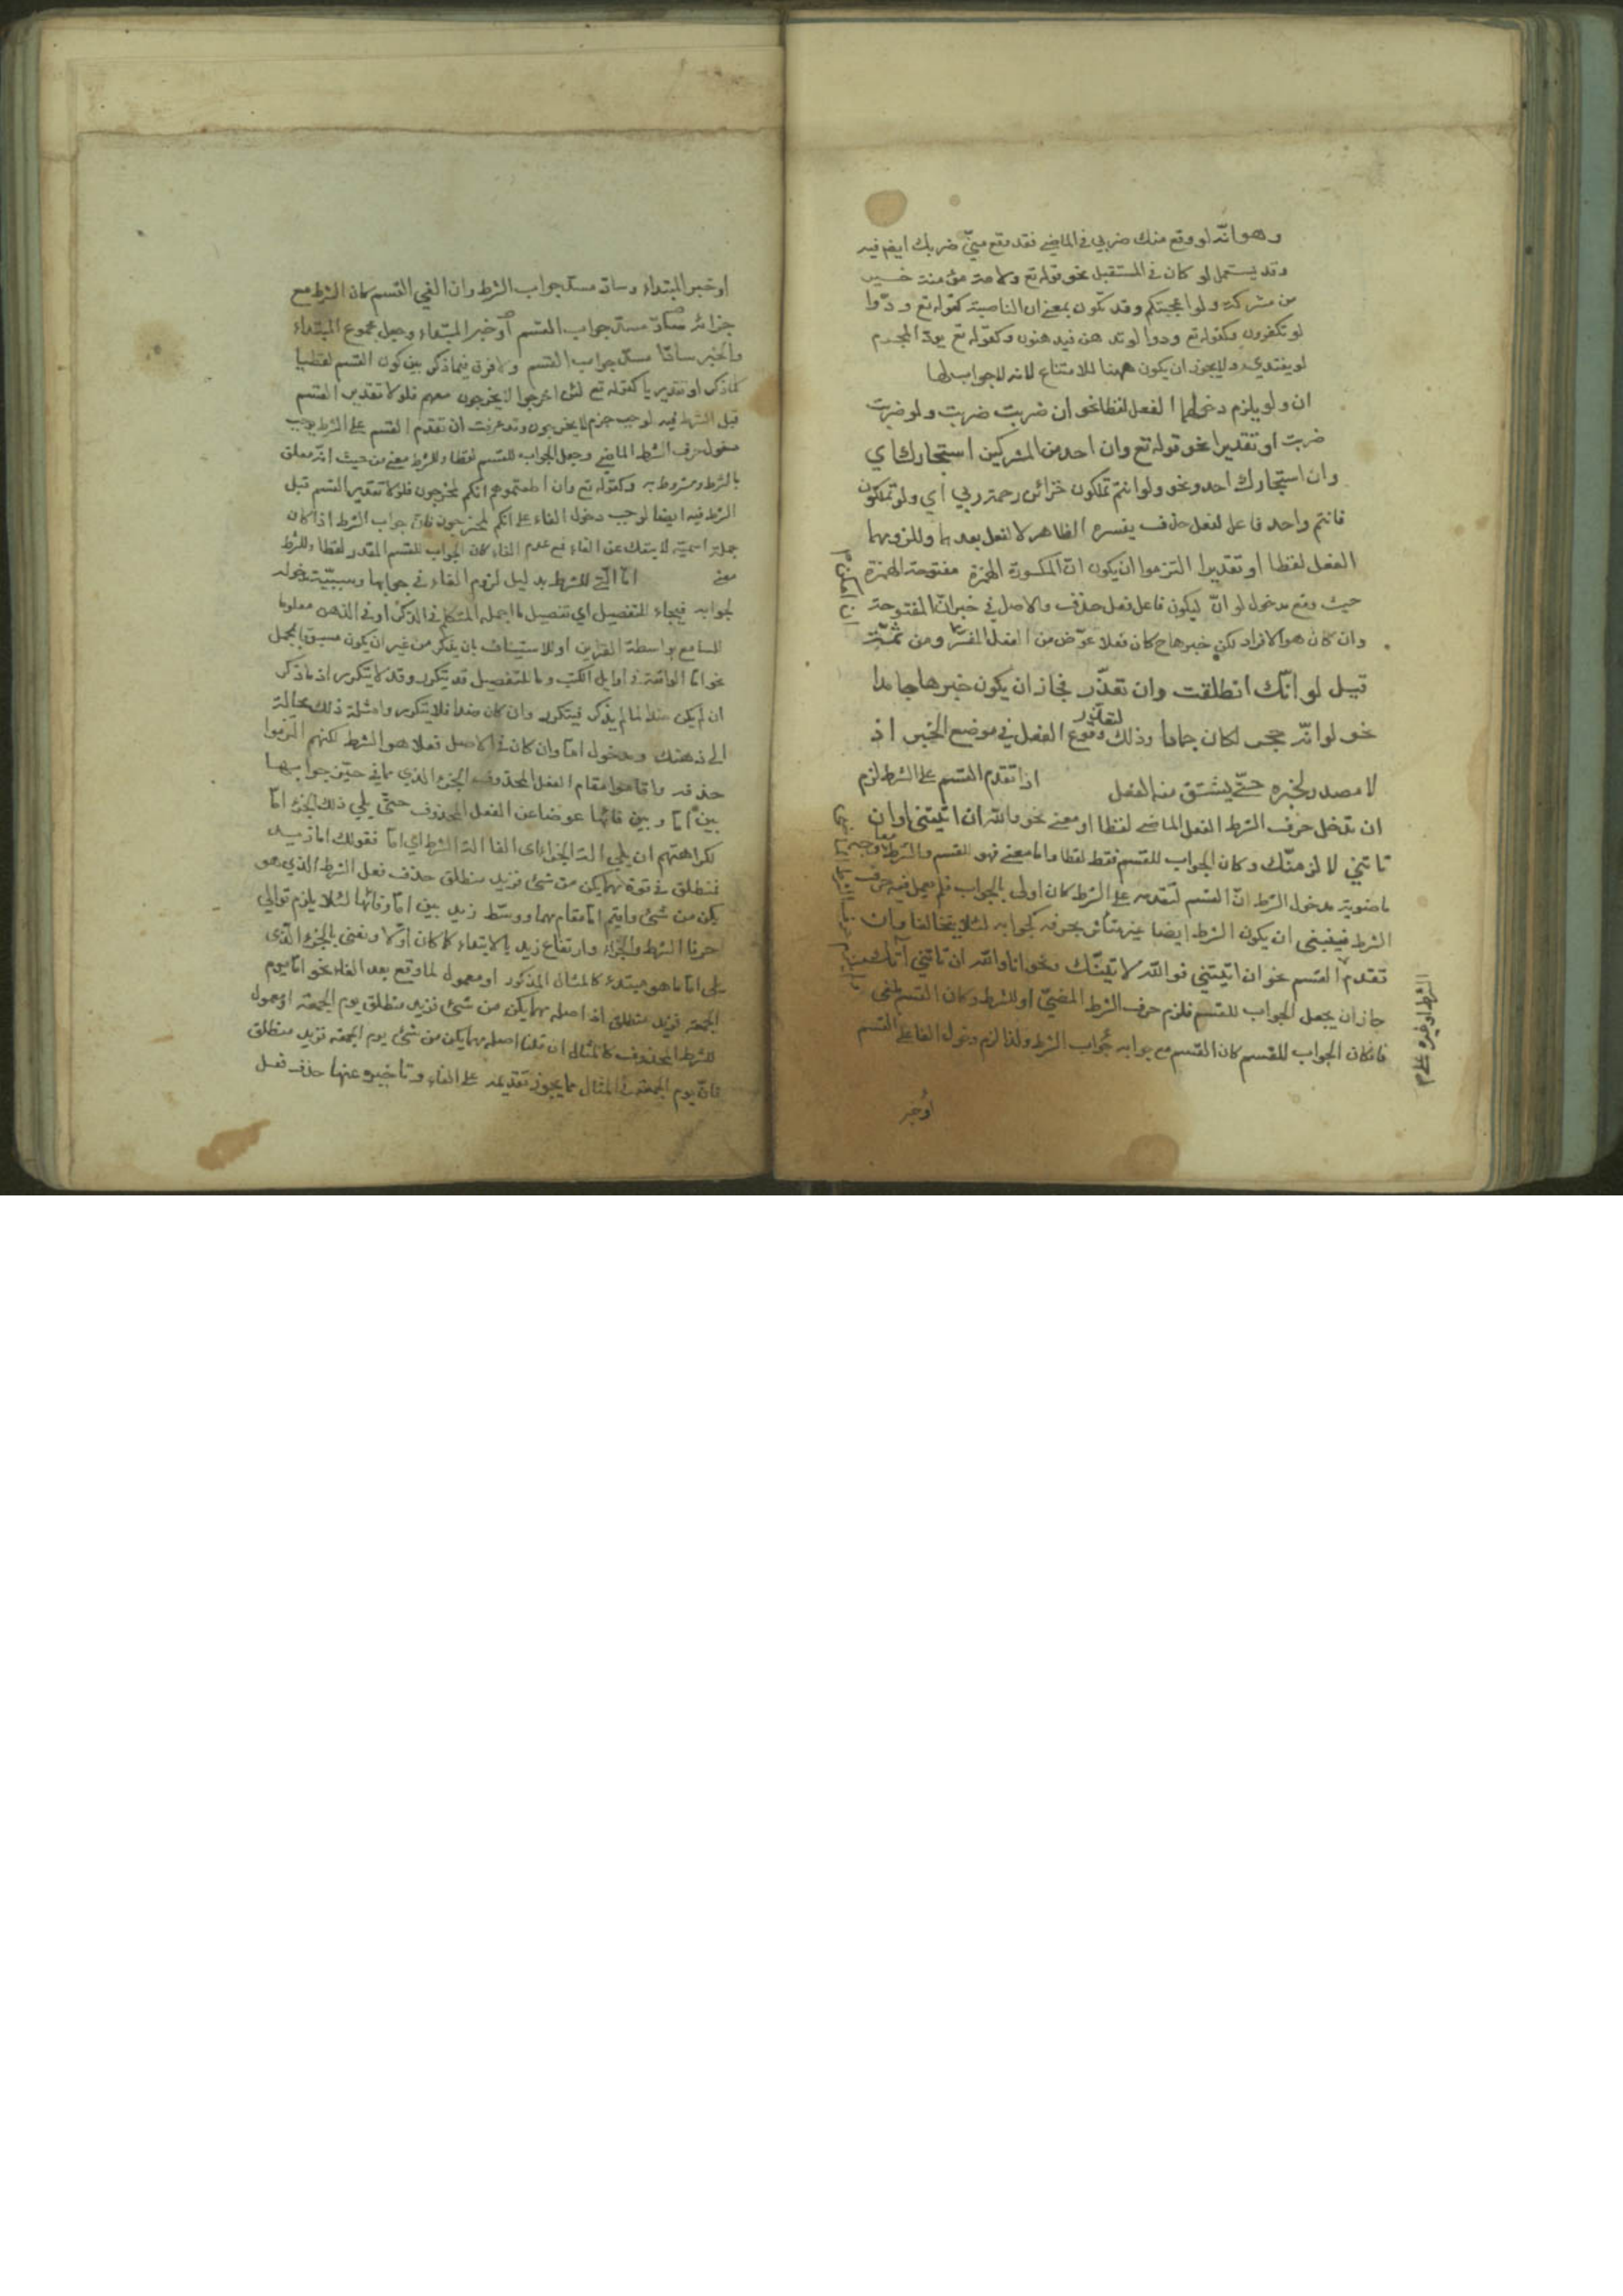 وهو انّه لو وقع منك ضربي في الماضي فقد وقع منّي ضربك ايضا فيه
وقد يستعمل لو كان في المستقبل نحو قوله تع ولامة مؤمنة خير
من مشركة ولو اعجبتكم وقد تكون بمعنى ان الناصبة كقوله تع ودّوا
لو تكفرون وكقوله تع ودوا لو تدهن فيدهنون وكقوله تع يودّ المجرم
لو يفتدي ولا يجوز ان يكون ههنا للامتناع لانه لا جواب لها
ان ولو يلزم دخولهما الفعل لفظا نحو ان ضربت ضربت ولو ضربت
ضربت او تقديرا نحو قوله تع وان احد من المشركين استجارك اي
وان استجارك احد ونحو ولو انتم تملكون خزائن رحمة ربي اي ولو تملكون
فانتم واحد فاعل لفعل حذف يفسره الظاهر لا لفعل بعدهما وللزومهما
الفعل لفظا او تقديرا التزموا ان يكون انّ المكسورة الهمزة مفتوحة الهمزة
حيث وقع مدخول لو انّ ليكون فاعل فعل حذف والاصل في خبر انّ المفتوحة
وان كان هو الافراد لكن خبرها ح كان فعلا عوّض من الفعل المفسّر ومن ثمّت
قيل لو انّك انطلقت وان تعذّر فجاز ان يكون خبرها جامدا
نحو لو انّه حجر لكان جمادا وذلك لتعذّر وقوع الفعل في موضع الخبر اذ
لا مصدر لخبره حتّى يشتق منه الفعل اذا تقدم القسم على الشرط لزم
ان تدخل حرف الشرط الفعل الماضي لفظا او معنى نحو والله ان اتيتني او ان
تاتني لا لزمنّك وكان الجواب للقسم فقط لفظا واما معنى فهو للقسم والشرط معا
ماضوية مدخول الشرط انّ القسم لتقدمه على الشرط كان اولى بالجواب فلم يعمل فيه حرف
الشرط فينبغي ان يكون الشرط ايضا غير متأثر بحرفه كجوابه لئلا يتخالفا وان
تقدم القسم نحو ان اتيتني فوالله لاتينّك ونحو انا والله ان تاتني آتك
جاز ان يجعل الجواب للقسم فلزم حرف الشرط المضيّ او للشرط وكان القسم لغى
فان كان الجواب للقسم كان القسم مع جوابه جواب الشرط ولذا لزم دخول الفا على القسم
او خبر
الشرط او غيره
او خبر المبتداء وسادّ مسدّ جواب الشرط وان الغي القسم كان الشرط مع
جزائه سادّ مسدّ جواب القسم او خبر المبتداء وجعل مجموع المبتداء
والخبر سادّا مسدّ جواب القسم ولا فرق فيما ذكر بين كون القسم لفظيا
كما ذكر او تقديريا كقوله تع لئن اخرجوا لا يخرجون معهم فلولا تقدير القسم
قبل الشرط فيه لوجب جزم لا يخرجون وقد عرفت ان تقدم القسم على الشرط يوجب
دخول حرف الشرط الماضي وجعل الجواب للقسم لفظا وللشرط معنى من حيث انه معلق
بالشرط ومشروط به وكقوله تع وان اطعتموهم انكم لمخرجون فلولا تقدير القسم قبل
الشرط فيه ايضا لوجب دخول الفاء على انكم لمخرجون فان جواب الشرط اذا كان
جملة اسمية لا ينفك عن الفاء فمع عدم الفاء كان الجواب للقسم المقدر لفظا وللشرط
معنى امّا الّتي للشرط بدليل لزوم الفاء في جوابها وسببيّة دخوله
لجوابه فيجاء للتفصيل اي تفصيل ما اجمله المتكلم في الذكر او في الذهن معلوما
للسامع بواسطة القراين او للاستيناف بان يذكر من غير ان يكون مسبوق بمجمل
نحو امّا الواقعة في اوايل الكتب وما للتفصيل قد يتكرر وقد لا يتكرر اذ ما ذكر
ان لم يكن ضدا لما لم يذكر فيتكرر وان كان ضدا فلا يتكرر وامثلة ذلك محالة
الى ذهنك ومدخول امّا وان كان في الاصل فعلا هو الشرط لكنهم التزموا
حذفه واقاموا مقام الفعل المحذوف الجزء الذي مما في حيّز جوابها
بين امّا وبين فائها عوضا عن الفعل المحذوف حتّى يلي ذلك الجزء امّا
لكراهتهم ان يلي الة الجزاء اي الفا الة الشرط اي امّا فقولك اما زيد
فمنطلق في قوة مهما يكن من شئ فزيد منطلق حذف فعل الشرط الذي هو
يكن من شئ واقيم امّا مقام مهما ووسّط زيد بين امّا وفائها لئلا يلزم توالي
حرفا الشرط والجزاء وارتفاع زيد بالابتداء كما كان اوّلا ونعني بالجزء الذي
يلي امّا ما هو مبتدء كالمثال المذكور او معمول لما وقع بعد الفاء نحو امّا يوم
الجمعة فزيد منطلق اذ اصله مهما يكن من شئ فزيد منطلق يوم الجمعة او معمول
للشرط المحذوف كالمثال ان قلنا اصله مهما يكن من شئ يوم الجمعة فزيد منطلق
فانّ يوم الجمعة في المثال مما يجوز تقديمه على الفاء وتاخيره عنها حذف فعل